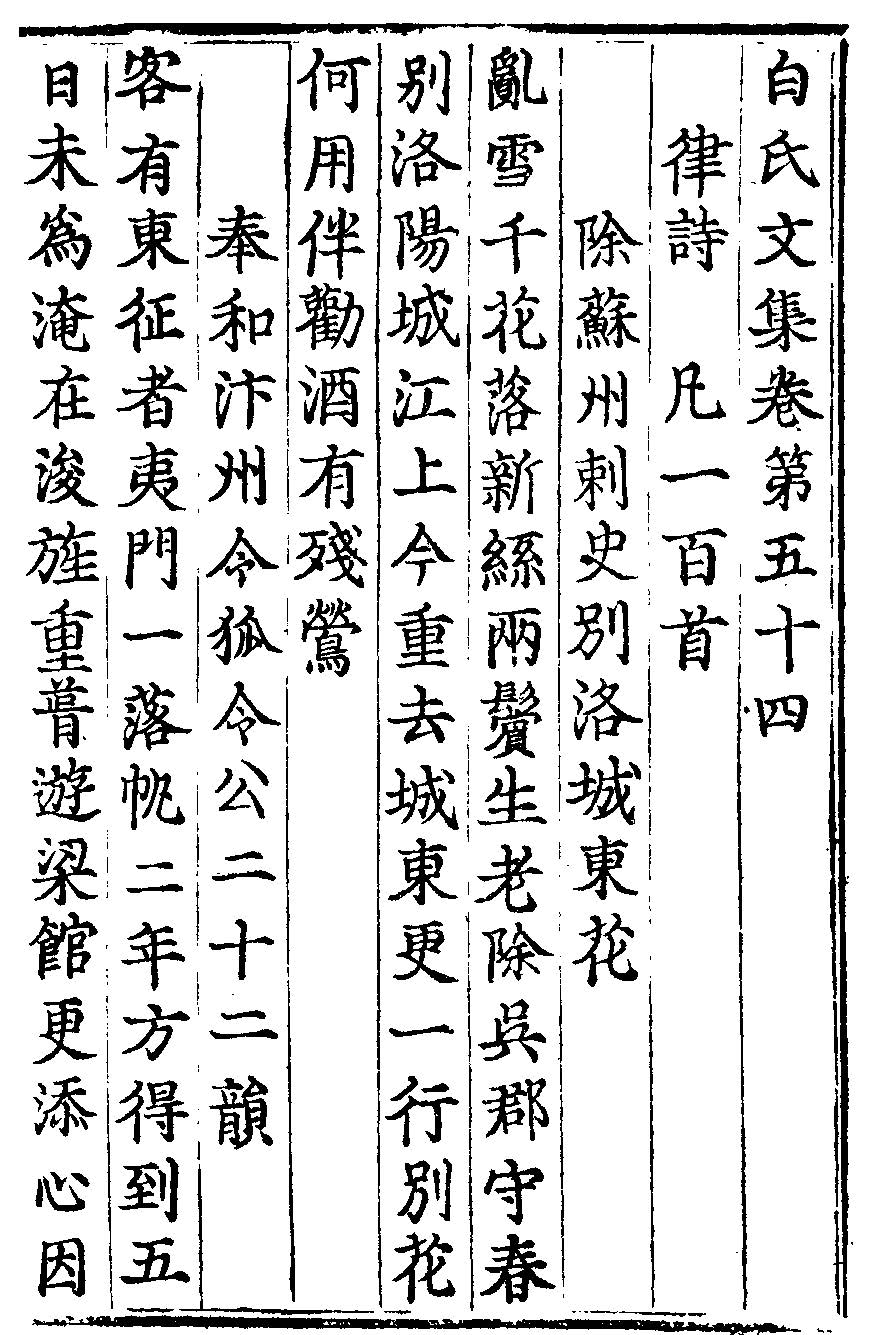 白氏文集卷第五十四
律詩 凡一百首
除蘇州刺史別洛城東花
亂雪千花落新絲兩鬢生老除吳郡守春
別洛陽城江上今重去城東更一行別花
何用伴勸酒有殘鶯
奉和汴州令狐令公二十二韻
客有東征者夷門一落帆二年方得到五
日未爲淹在浚旌重葺遊梁館更添心因